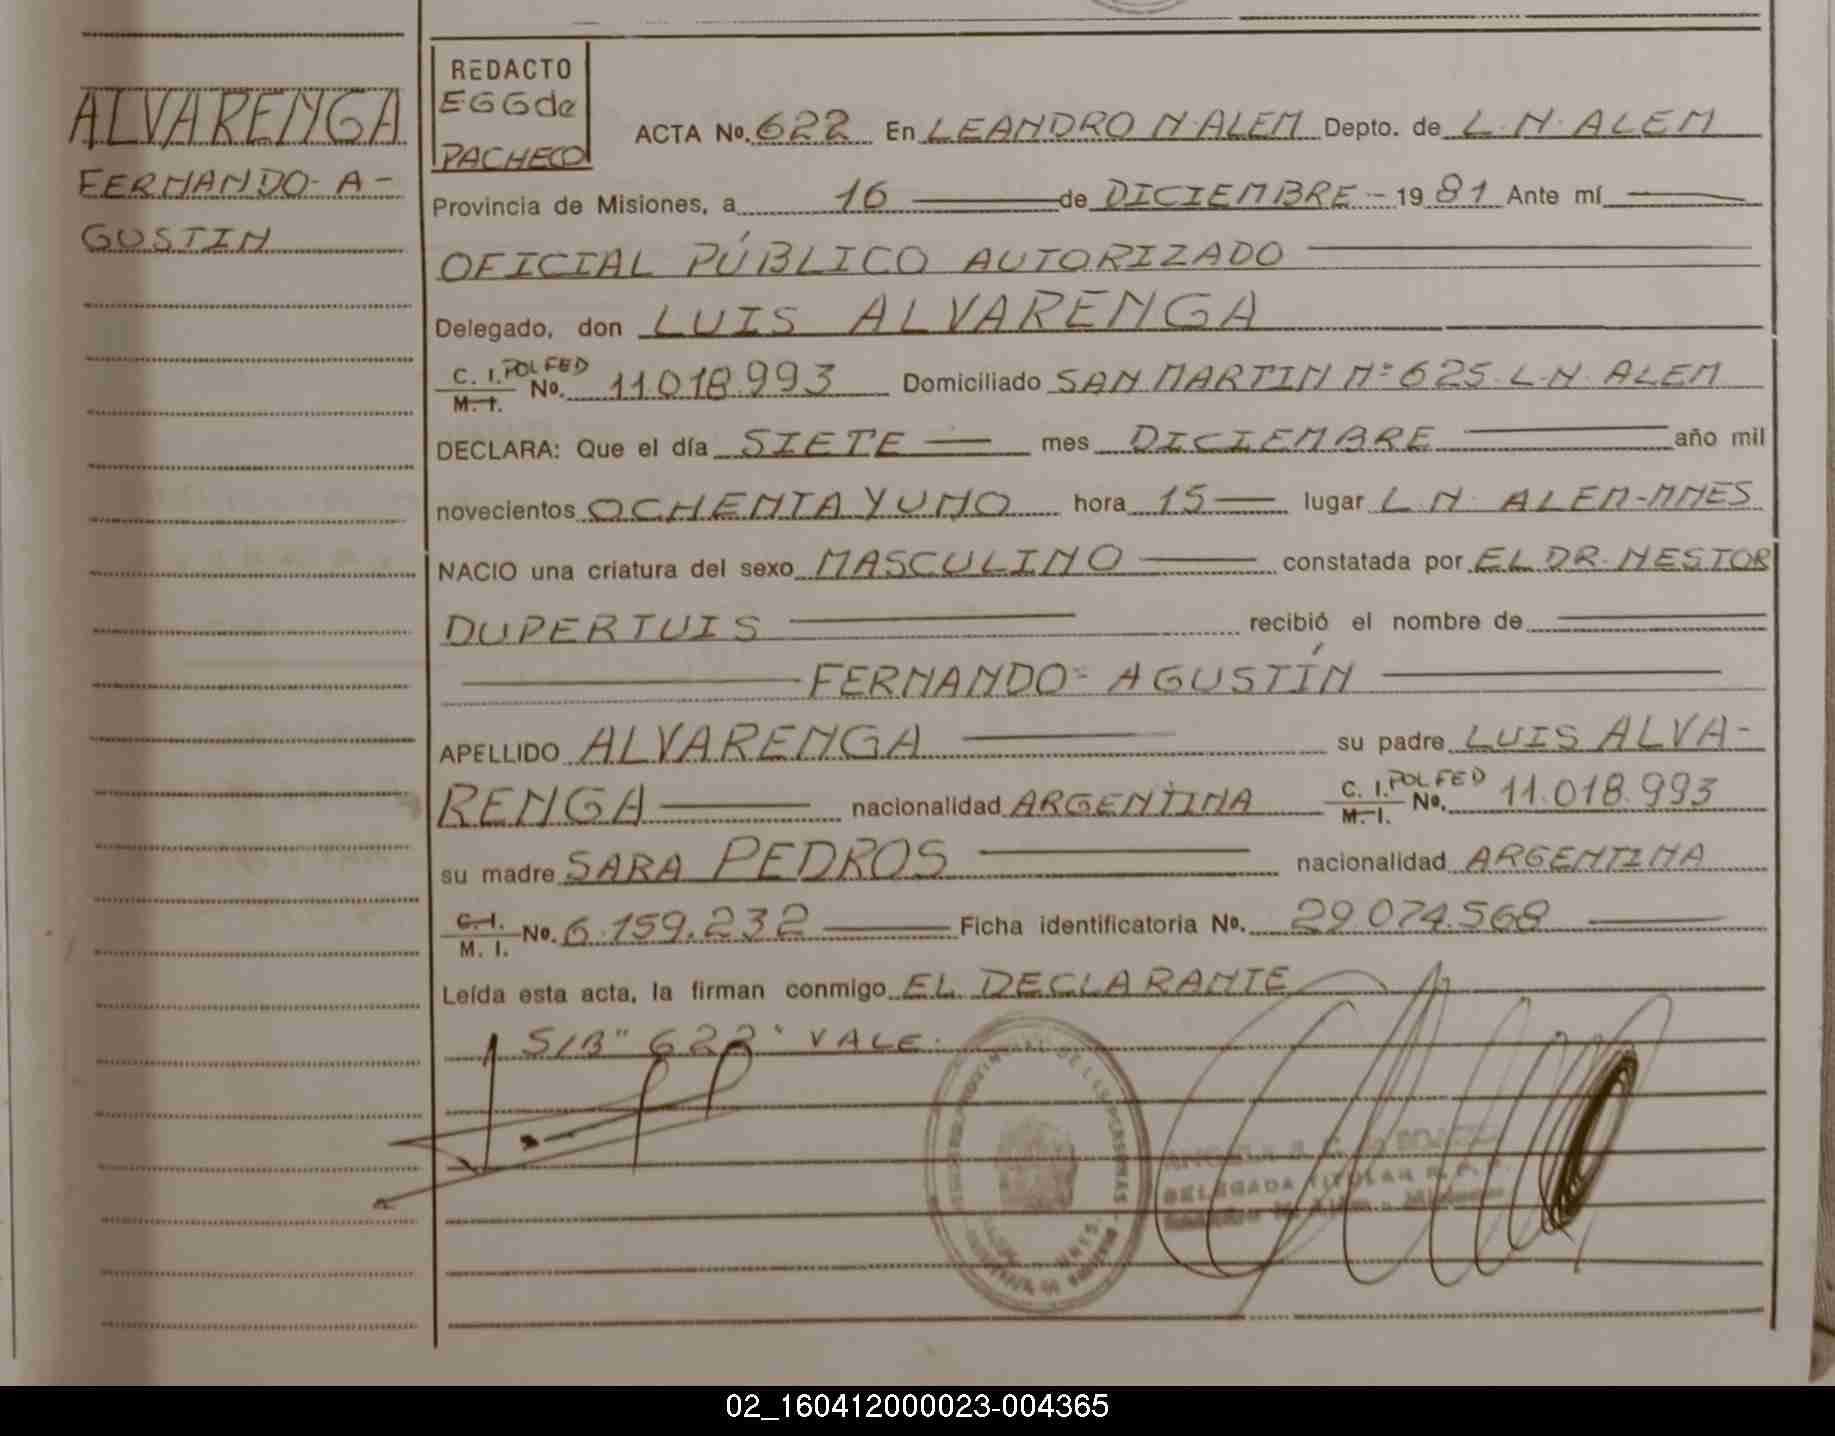 ALVARENGA
FERNANDO - A-
GUSTIN
REDACTO
EGGde
PACHECO
ACTA No. 622 En LEANDRO N. ALEM Depto. de L. N. ALEM
Provincia de Misiones, a 16 de DICIEMBRE - 1981 Ante mí
OFICIAL PÚBLICO AUTORIZADO
Delegado, don LUIS ALVARENGA
C. I. POL FED M. I. No. 11.018.993 Domiciliado SAN MARTIN Nº 625. L. N. ALEM
DECLARA: Que el día SIETE mes DICIEMBRE año mil
novecientos OCHENTA Y UNO hora 15 lugar L. N. ALEM-MNES
NACIO una criatura del sexo MASCULINO constatada por EL DR. NESTOR
DUPERTUIS recibió el nombre de
FERNANDO = AGUSTÍN
APELLIDO ALVARENGA su padre LUIS ALVA-
RENGA nacionalidad ARGENTINA C. I. POL FED M. I. No. 11.018.993
su madre SARA PEDROS nacionalidad ARGENTINA
C. I. M. I. No. 6.159.232 Ficha identificatoria No. 29.074.568
Leída esta acta, la firman conmigo EL DECLARANTE
S/B "622" VALE.
DELEGADA TITULAR
02_160412000023-004365